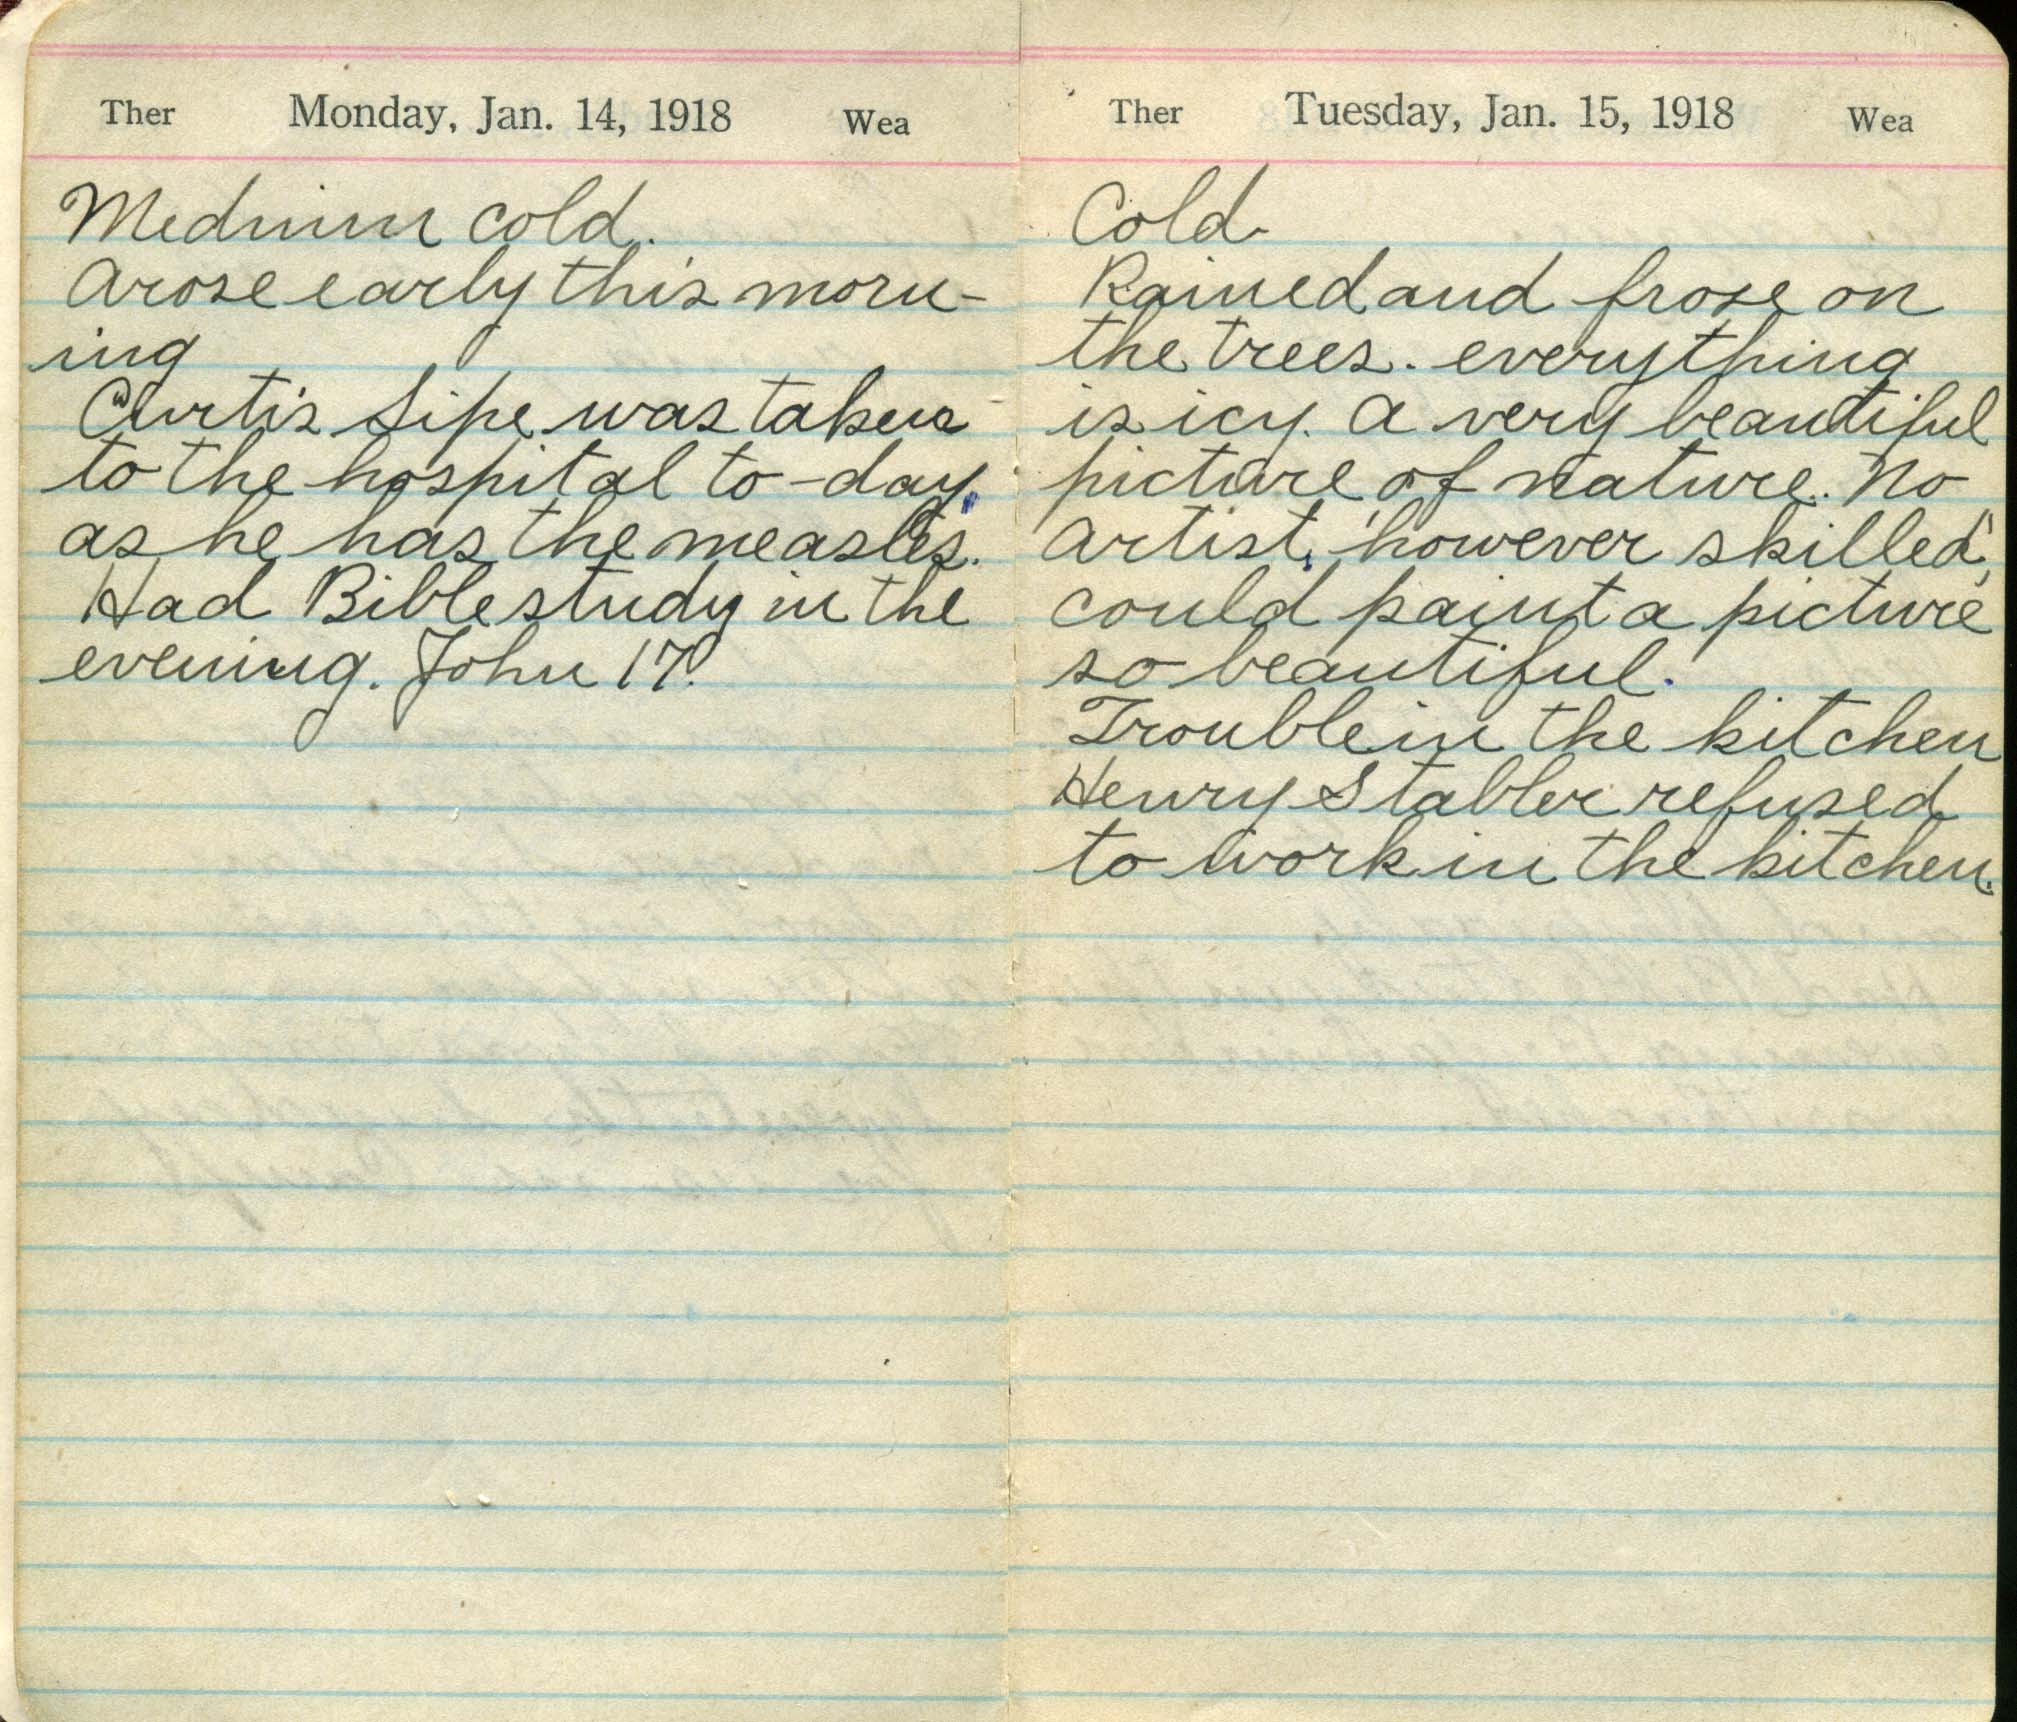 Ther Monday, Jan. 14, 1918 Wea
Medium cold.
Arose early this morn-
ing
Curtis Sipe was taken
to the hospital to-day,
as he has the measles.
Had Bible study in the
evening. John 17.
Ther Tuesday, Jan. 15, 1918 Wea
Cold
Rained and froze on
the trees. everything
is icy. A very beautiful
picture of nature. No
artist, however skilled,
could paint a picture
so beautiful.
Trouble in the kitchen
Henry Stabler refused
to work in the kitchen.